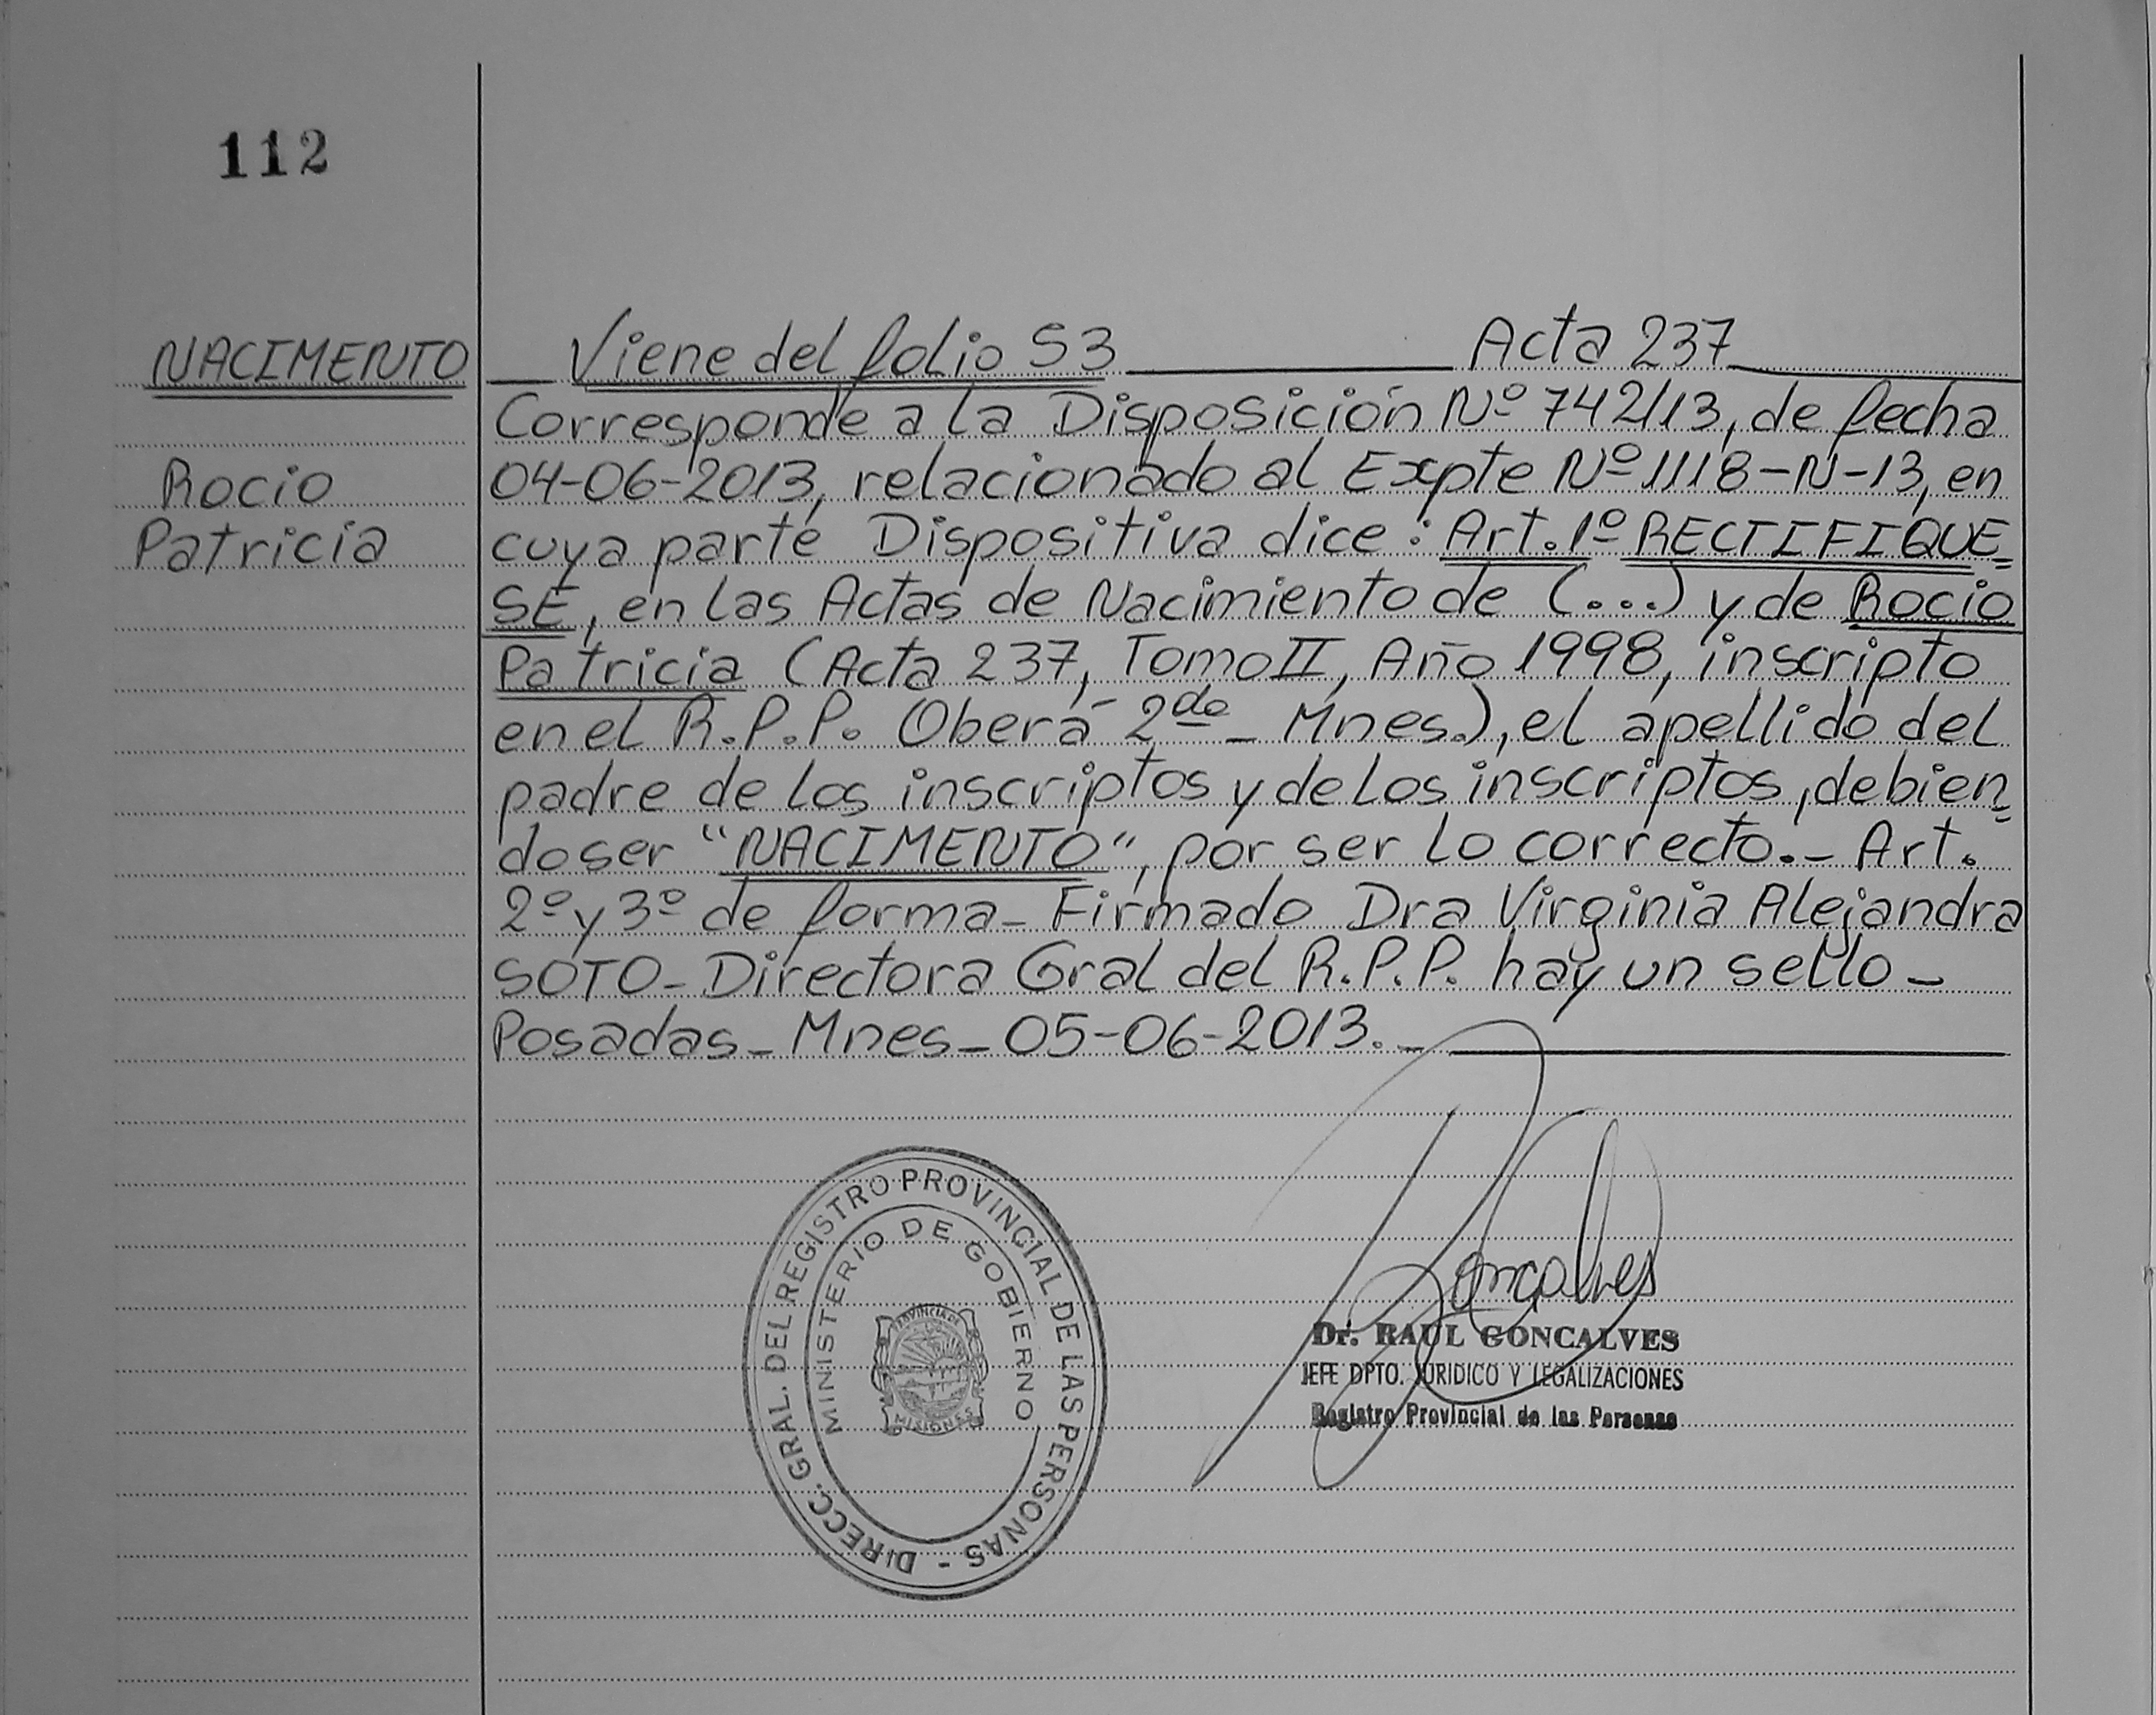 112
NACIMENTO
Rocio
Patricia
Viene del folio 53 Acta 237
Corresponde a la Disposición Nº 742/13, de fecha
04-06-2013, relacionado al Expte Nº 1118-N-13, en
cuya parte Dispositiva dice: Art. 1º RECTIFIQUE=
SE, en las Actas de Nacimiento de (...) y de Rocio
Patricia (Acta 237, Tomo II, Año 1998, inscripto
en el R.P.P. Oberá 2do - Mnes.), el apellido del
padre de los inscriptos y de los inscriptos, debien=
do ser "NACIMENTO", por ser lo correcto.- Art.
2º y 3º de forma- Firmado Dra Virginia Alejandra
SOTO- Directora Gral del R.P.P. hay un sello-
Posadas- Mnes- 05-06-2013.-
DIRECC. GRAL. DEL REGISTRO PROVINCIAL DE LAS PERSONAS -
MINISTERIO DE GOBIERNO
PROVINCIA DE
MISIONES
Goncalves
Dr. RAUL GONCALVES
JEFE DPTO. JURIDICO Y LEGALIZACIONES
Registro Provincial de las Personas